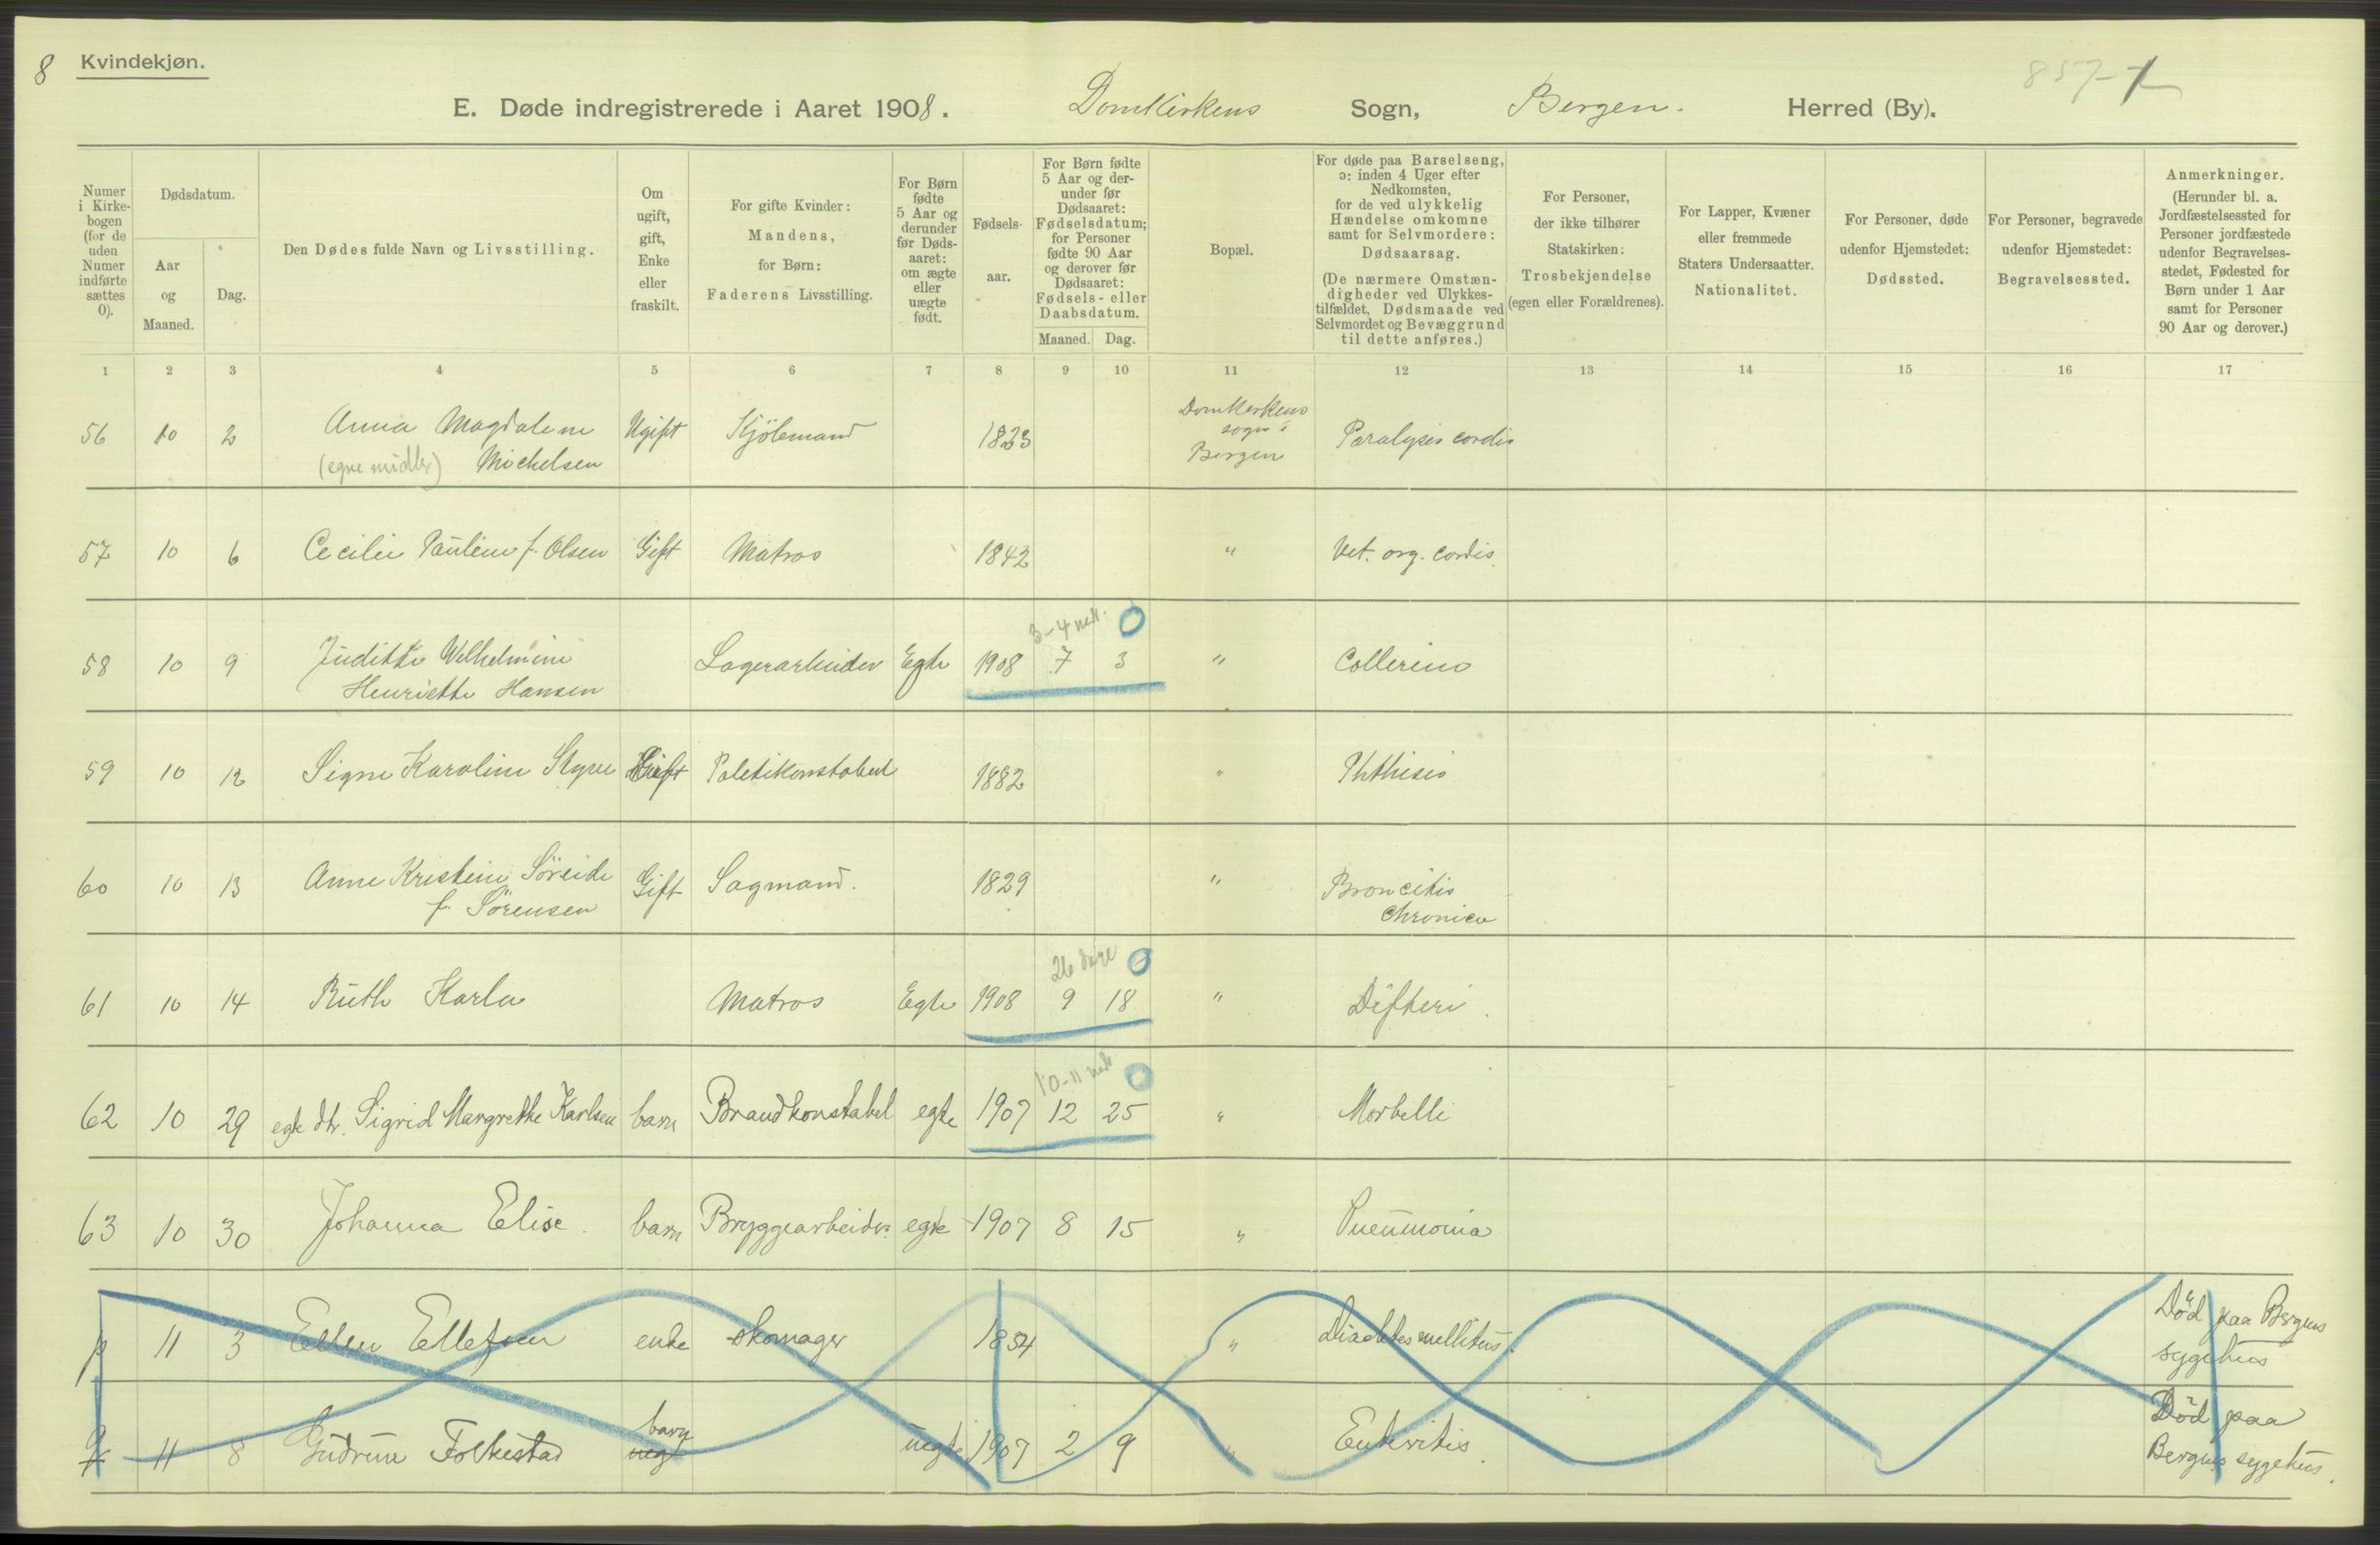 8 Kvindekjøn.
857-7
E. Døde indregistrerede i Aaret 1908. Domkirkens Sogn, Bergen. Herred (By).
Numer i Kirkebogen (for de uden Numer indførte sættes 0).
Dødsdatum.
Aar og Maaned.
Dag.
Den Dødes fulde Navn og Livsstilling.
Om ugift, gift, Enke eller fraskilt.
For gifte Kvinder: Mandens, for Børn: Faderens Livsstilling.
For Børn fødte 5 Aar og derunder før Dødsaaret: om ægte eller uægte født.
Fødselsaar.
For Børn fødte 5 Aar og derunder før Dødsaaret: Fødselsdatum; for Personer fødte 90 Aar og derover før Dødsaaret: Fødsels- eller Daabsdatum.
Maaned. Dag.
Bopæl.
For døde paa Barselseng, ɔ: inden 4 Uger efter Nedkomsten, for de ved ulykkelig Hændelse omkomne samt for Selvmordere: Dødsaarsag.
(De nærmere Omstændigheder ved Ulykkestilfældet, Dødsmaade ved Selvmordet og Bevæggrund til dette anføres.)
For Personer, der ikke tilhører Statskirken: Trosbekjendelse (egen eller Forældrenes).
For Lapper, Kvæner eller fremmede Staters Undersaatter. Nationalitet.
For Personer, døde udenfor Hjemstedet: Dødssted.
For Personer, begravede udenfor Hjemstedet: Begravelsessted.
Anmerkninger. (Herunder bl. a. Jordfæstelsessted for Personer jordfæstede udenfor Begravelsesstedet, Fødested for Børn under 1 Aar samt for Personer 90 Aar og derover.)
1 2 3 4 5 6 7 8 9 10 11 12 13 14 15 16 17
56 10 2 Anna Magdalene Ugift Kjölemand 1823 Domkerkens sogn i Bergen Paralysis cordis
(egne midler) Michelsen
57 10 6 Cecilie Pauline f. Olsen Gift Matros 1842 " Vet. org. cordis.
3-4 mdr. 0
58 10 9 Judithe Wilhelmine Lagerarbeider Egte 1908 7 3 " Collerino
Henriette Hansen
59 10 12 Signe Karoline Gift Politikonstabel 1882 " Phthisis
60 10 13 Anne Kristine Söreide Gift Sagmand. 1829 " Broncitis
f. Sörensen chronica
26 dage 0
61 10 14 Ruth Karla Matros Egte 1908 9 18 " Difteri.
10-11 mdr 0
62 10 29 egte dtr. Sigrid Margrethe Karlsen barn Brandkonstabel egte 1907 12 25 " Morbilli
63 10 30 Johanna Elise. barn Bryggearbeider egte 1907 8 15 " Pneumonia
p 11 3 Ellen Ellefsen enke skomager 1854 " Diabetes mellitus. Död paa Bergens sygehus
q 11 8 Gudrun Folkestad barn uegte 1907 2 9 " Enteritis. Död paa Bergens sygehus.